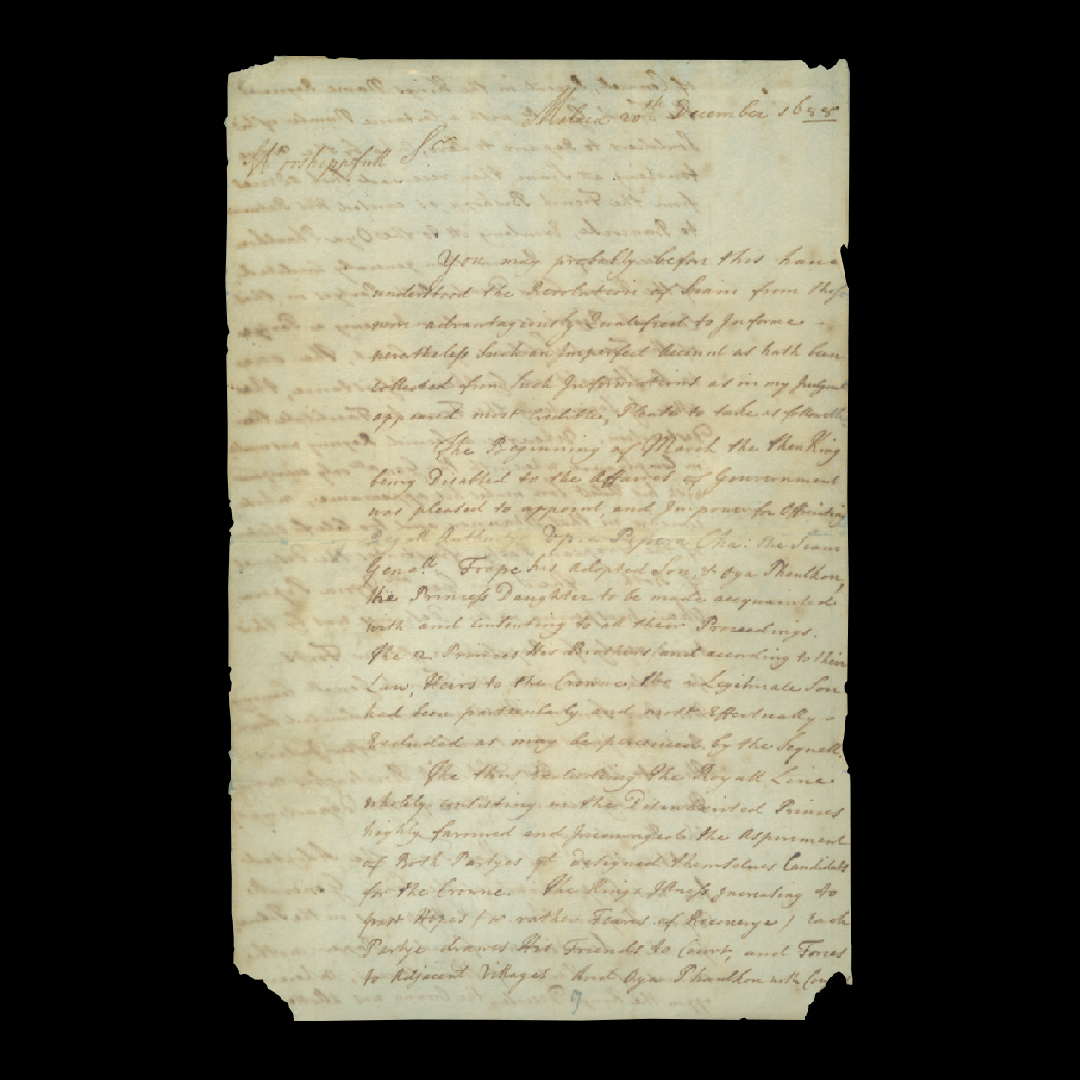 Malaca 20th December 1688
Worshippfull Sr
You may probably before this have
understood the Revolutions of Sciam from those
more advantagiously Qualefied to Informe
neretheless Such an Imperfect Account as hath been
collected from Such Informations as in my Judgmt
appeared most Credible, Please to take as followeth.
The Beginning of March the then King
being Disabled to the Affaires of Government
was pleased to appoint, and Impower for Officiating
Regall Authority Opra Pipera Cha: the Siam
Genall. Frepe his adopted Son, & Oya Phaulkon,
the Princess Daughter to be made acequainted
with and Contenting to all their Proceedings.
The 2 Princes His Brothers and according to their
Law, Heirs to the Crowne, the Legitimate Son
had been particularly and most Effectually
Excluded as may be perceived by the Sequell.
The thus Excluding the Royall Line
wholely consisting in the Disinherited Princes
highly favoured and Incouraged the Aspirement
of Both Partyes yt designed themselves Candidats
for the Crowne. The Kings Illness increasing to
past Hopes (or rather Feares of Recoverye) Each
Partye drawes His Friends to Court, and Forces
to Adjacent Villages And Oya Phaulkon with
9